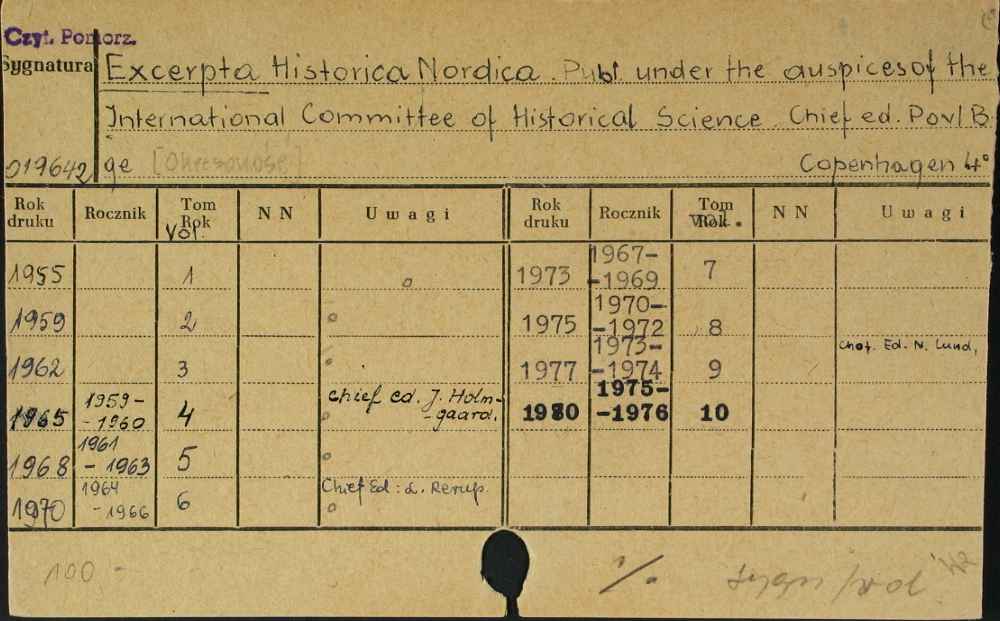 Czyt. Pomorz.
Sygnatura
Excerpta Historica Nordica. Publ. under the auspices of the
International Committee of Historical Science. Chief ed. Povl B
019642 ge Copenhagen 4°
Rok druku Rocznik Tom Rok Vol. NN Uwagi Rok druku Rocznik Tom Rok Vol. NN Uwagi
1955 1 1973 1967-1969 7
1959 2 1975 1970-1972 8
1962 3 1977 1973-1974 9 Chef. Ed. N. Lund,
1965 1959-1960 4 chief ed. J. Holm-gaard. 1980 1975-1976 10
1968 1961-1963 5
1970 1964-1966 6 Chief Ed: L. Rerup.
100 -